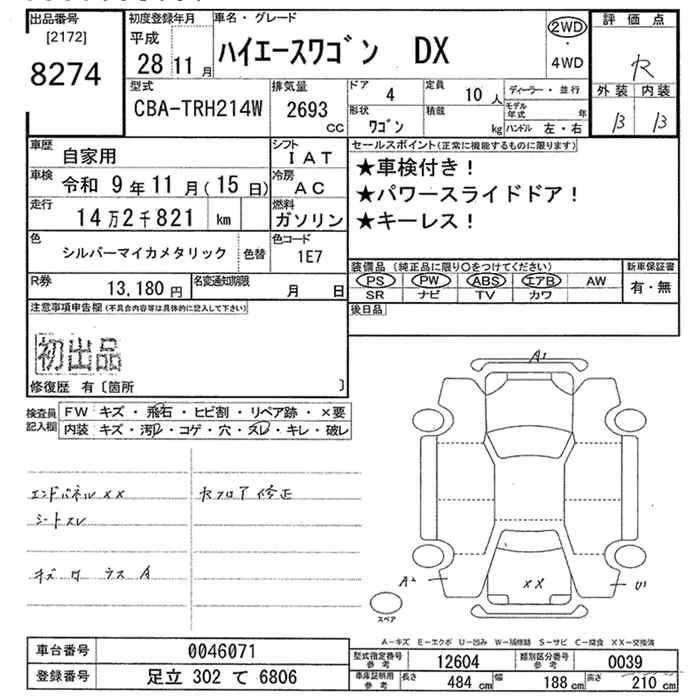 出品番号
[2172]
8274
初度登録年月
平成
28 11 月
車名・グレード
ハイエースワゴン DX
2WD
・
4WD
評価点
R
外装 内装
B B
型式
CBA-TRH214W
排気量
2693
cc
ドア
4
定員
10 人
ディーラー・並行
形状
ワゴン
積載
kg
モデル年式 年
ハンドル 左・右
車歴
自家用
シフト
IAT
車検
令和 9年11月(15日)
冷房
AC
走行
14万2千821 km
燃料
ガソリン
色
シルバーマイカメタリック
色替
色コード
1E7
R券
13,180 円
名変通知期限
月 日
セールスポイント(正常に機能するものに限ります)
★車検付き!
★パワースライドドア!
★キーレス!
装備品 (純正品に限り○をつけてください)
PS PW ABS エアB AW
SR ナビ TV カワ
新車保証書
有・無
後日品
注意事項申告欄(不具合内容等は具体的に記入して下さい)
初出品
修復歴 有〔箇所 〕
検査員記入欄
FW キズ・飛石・ヒビ割・リペア跡・×要
内装 キズ・汚れ・コゲ・穴・スレ・キレ・破レ
エンドパネル××
シートスレ
右フロア修正
キズ ウス A
A1
A2
××
U1
スペア
A-キズ E-エクボ U-凹み W-補修跡 S-サビ C-腐食 XX-交換済
車台番号
0046071
登録番号
足立 302 て 6806
型式指定番号
参考
12604
類別区分番号
参考
0039
車庫証明用
参考
長さ
484 cm
幅
188 cm
高さ
210 cm